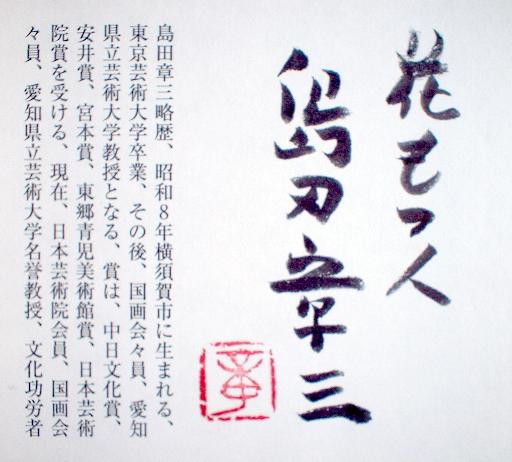 花もつ人
島田章三
章
島田章三略歴、昭和8年横須賀市に生まれる、
東京芸術大学卒業、その後、国画会々員、愛知
県立芸術大学教授となる、賞は、中日文化賞、
安井賞、宮本賞、東郷青児美術館賞、日本芸術
院賞を受ける、現在、日本芸術院会員、国画会
々員、愛知県立芸術大学名誉教授、文化功労者